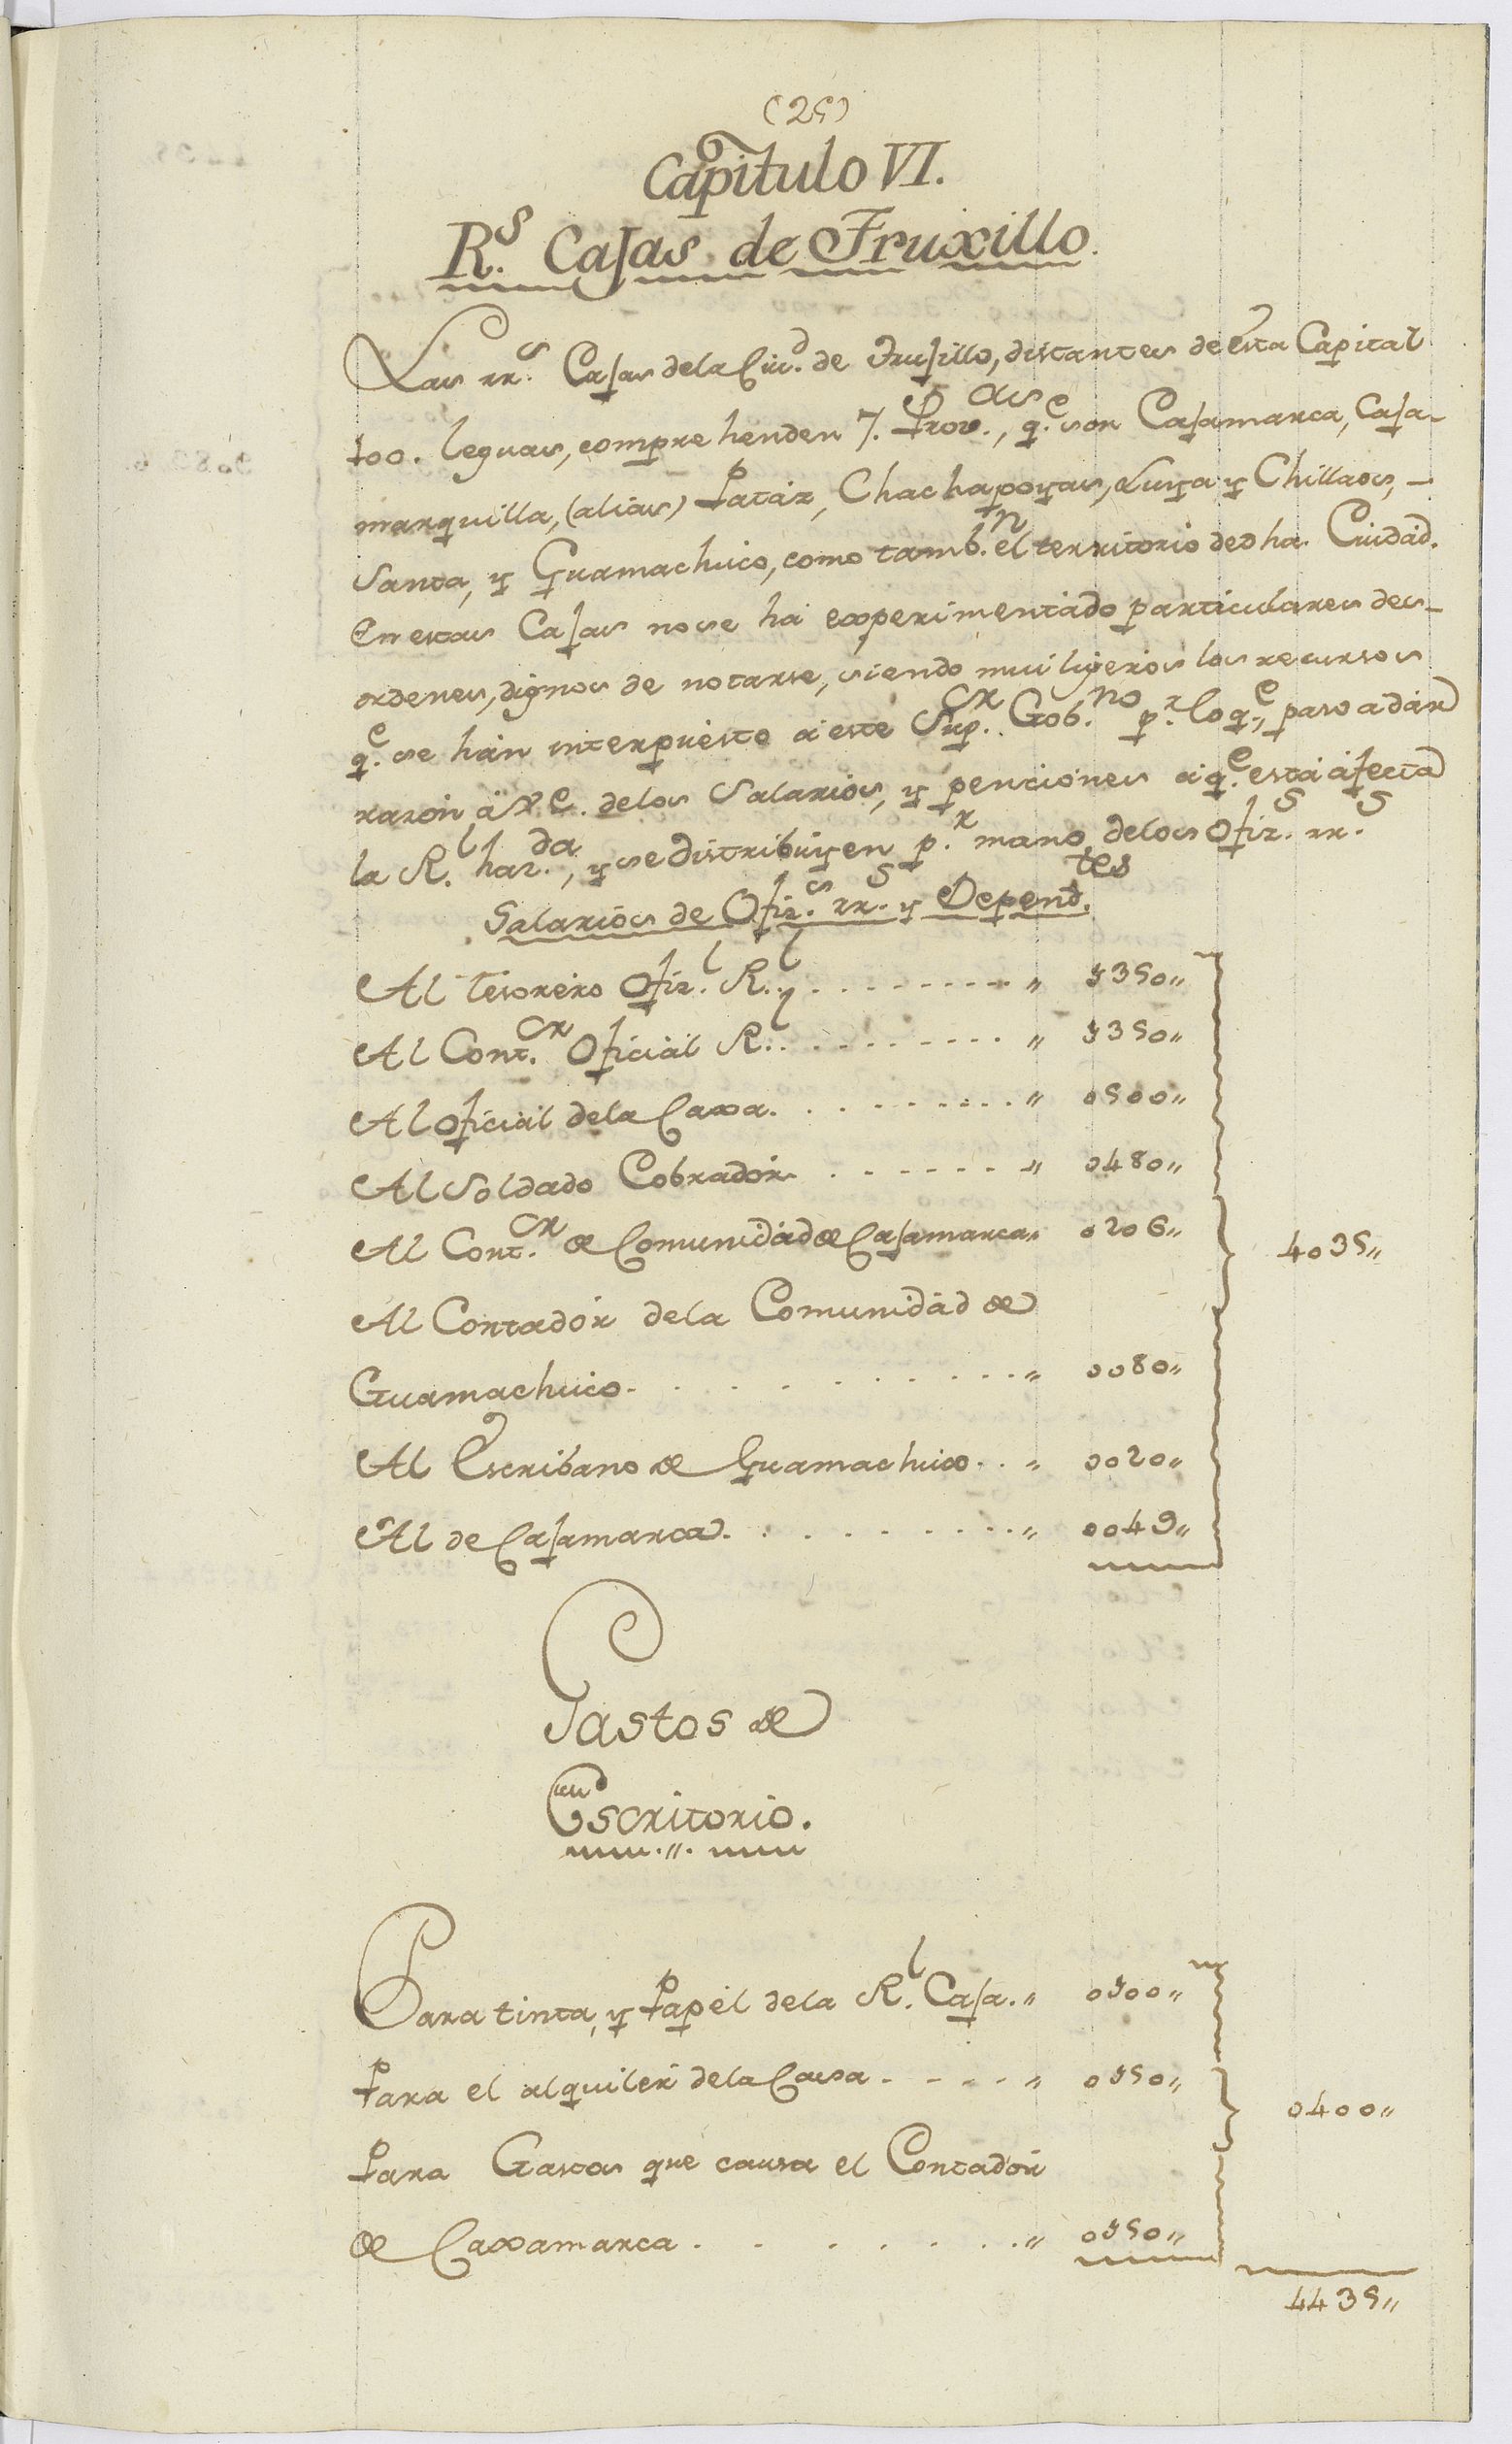 (25)
Capitulo VI.
R.s Cajas de Truxillo.
Las rr.s Cajas dela Ciu.d de Trujillo, distantes de esta Capital
100. leguas, comprehenden 7. Prov.as, q.e son Cajamarca, Caja-
marquilla, (alias) Patáz, Chachapoyas, Luya y Chillaos, -
Santa, y Guamachuco, como tamb.n el territorio de dha. Ciudad.
En estas Cajas no se há experimentado particulares des-
ordenes, dignos de notarse, siendo mui ligeros los recursos
q.e se hán interpuesto á este Sup.or Gob.no p.r lo q.e, paso a dár
razón á V.E. delos Salarios, y penciones á q.e está afecta
la R.l haz.da, y se distribuyen p.r mano delos Ofiz.s rr.s
Salarios de Ofiz.s rr.s y Depend.tes
Al Tesorero Ofiz.l R.l . . . . . . . . . " 1350"
Al Cont.or Oficial R.l . . . . . . . . . " 1350"
Al Oficial dela Caxa. . . . . . . . . . " 0500"
Al Soldado Cobrador . . . . . . . " 0480"
Al Cont.or de Comunidad de Cajamarca" 0206"
4035"
Al Contador dela Comunidád de
Guamachuco. . . . . . . . . " 0080"
Al Escribano de Guamachuco. . " 0020"
Al de Cajamarca. . . . . . . . . " 0049"
Gastos de
Escritorio.
Para tinta, y Papél dela R.l Caja." 0100"
Para el alquiler dela Casa . - - . " 0150"
0400"
Para Gastos que causa el Contadór
de Caxamarca . . . . . . . " 0150"
4435"